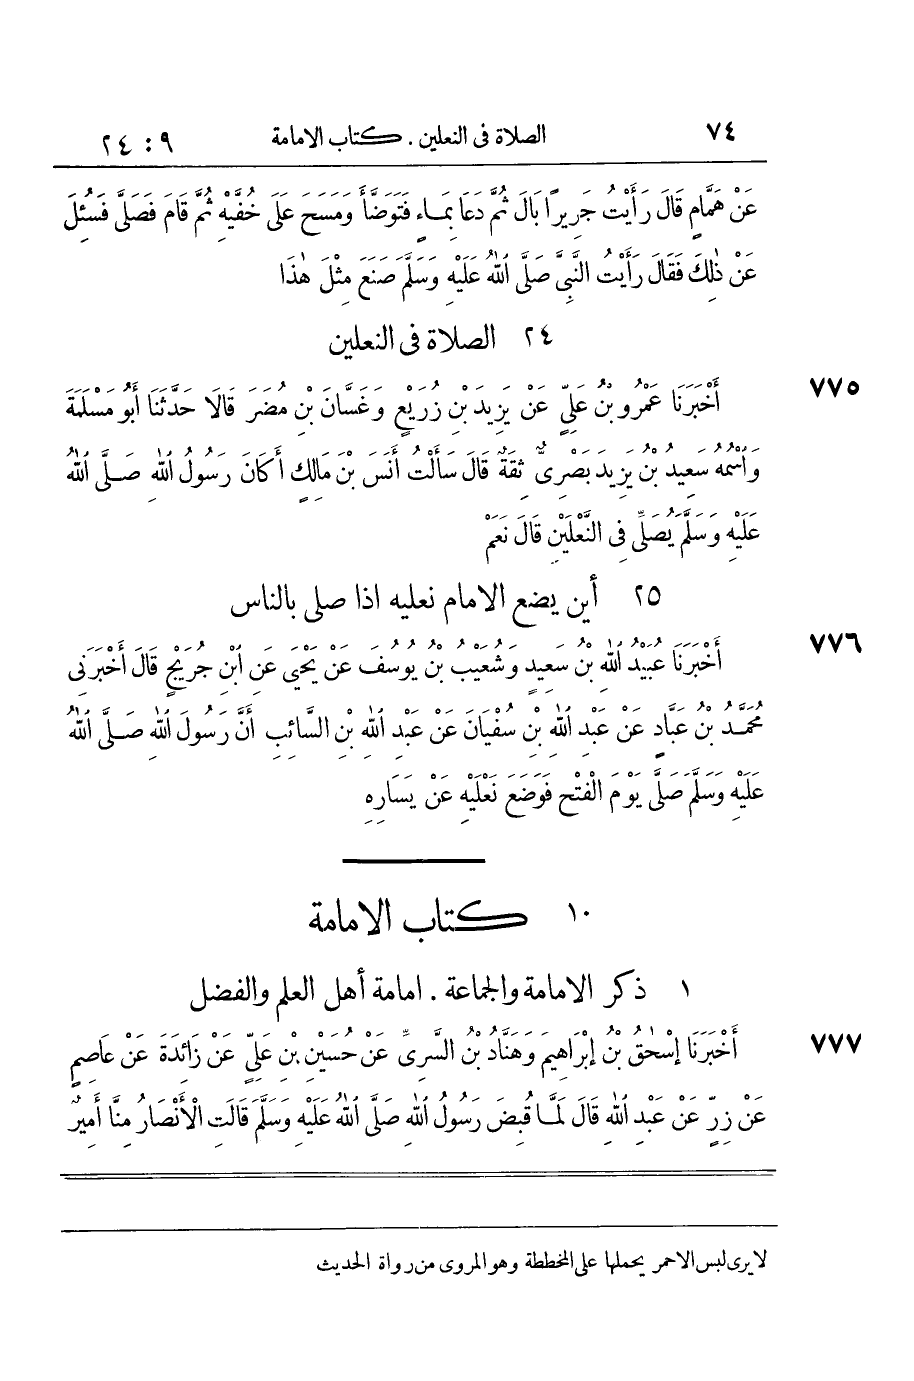 ٧٤ الصلاة فى النعلين . كتاب الامامة ٩ : ٢٤
عَنْ هَمَّامٍ قَالَ رَأَيْتُ جَرِيرًا بَالَ ثُمَّ دَعَا بِمَاءٍ فَتَوَضَّأَ وَمَسَحَ عَلَى خُفَّيْهِ ثُمَّ قَامَ فَصَلَّى فَسُئِلَ
عَنْ ذٰلِكَ فَقَالَ رَأَيْتُ النَّبِيَّ صَلَّى اللّٰهُ عَلَيْهِ وَسَلَّمَ صَنَعَ مِثْلَ هٰذَا
٢٤ الصلاة فى النعلين
٧٧٥ أَخْبَرَنَا عَمْرُو بْنُ عَلِيٍّ عَنْ يَزِيدَ بْنِ زُرَيْعٍ وَغَسَّانَ بْنِ مُضَرَ قَالَا حَدَّثَنَا أَبُو مَسْلَمَةَ
وَاسْمُهُ سَعِيدُ بْنُ يَزِيدَ بَصْرِىٌّ ثِقَةٌ قَالَ سَأَلْتُ أَنَسَ بْنَ مَالِكٍ أَكَانَ رَسُولُ اللّٰهِ صَلَّى اللّٰهُ
عَلَيْهِ وَسَلَّمَ يُصَلِّى فِى النَّعْلَيْنِ قَالَ نَعَمْ
٢٥ أين يضع الامام نعليه اذا صلى بالناس
٧٧٦ أَخْبَرَنَا عُبَيْدُ اللّٰهِ بْنُ سَعِيدٍ وَشُعَيْبُ بْنُ يُوسُفَ عَنْ يَحْيَى عَنِ ابْنِ جُرَيْجٍ قَالَ أَخْبَرَنِى
مُحَمَّدُ بْنُ عَبَّادٍ عَنْ عَبْدِ اللّٰهِ بْنِ سُفْيَانَ عَنْ عَبْدِ اللّٰهِ بْنِ السَّائِبِ أَنَّ رَسُولَ اللّٰهِ صَلَّى اللّٰهُ
عَلَيْهِ وَسَلَّمَ صَلَّى يَوْمَ الْفَتْحِ فَوَضَعَ نَعْلَيْهِ عَنْ يَسَارِهِ
١٠ كتاب الامامة
١ ذكر الامامة والجماعة . امامة أهل العلم والفضل
٧٧٧ أَخْبَرَنَا إِسْحٰقُ بْنُ إِبْرَاهِيمَ وَهَنَّادُ بْنُ السَّرِىِّ عَنْ حُسَيْنِ بْنِ عَلِيٍّ عَنْ زَائِدَةَ عَنْ عَاصِمٍ
عَنْ زِرٍّ عَنْ عَبْدِ اللّٰهِ قَالَ لَمَّا قُبِضَ رَسُولُ اللّٰهِ صَلَّى اللّٰهُ عَلَيْهِ وَسَلَّمَ قَالَتِ الْأَنْصَارُ مِنَّا أَمِيرٌ
لا يرى لبس الاحمر يحملها على المخططة وهو المروى من رواة الحديث